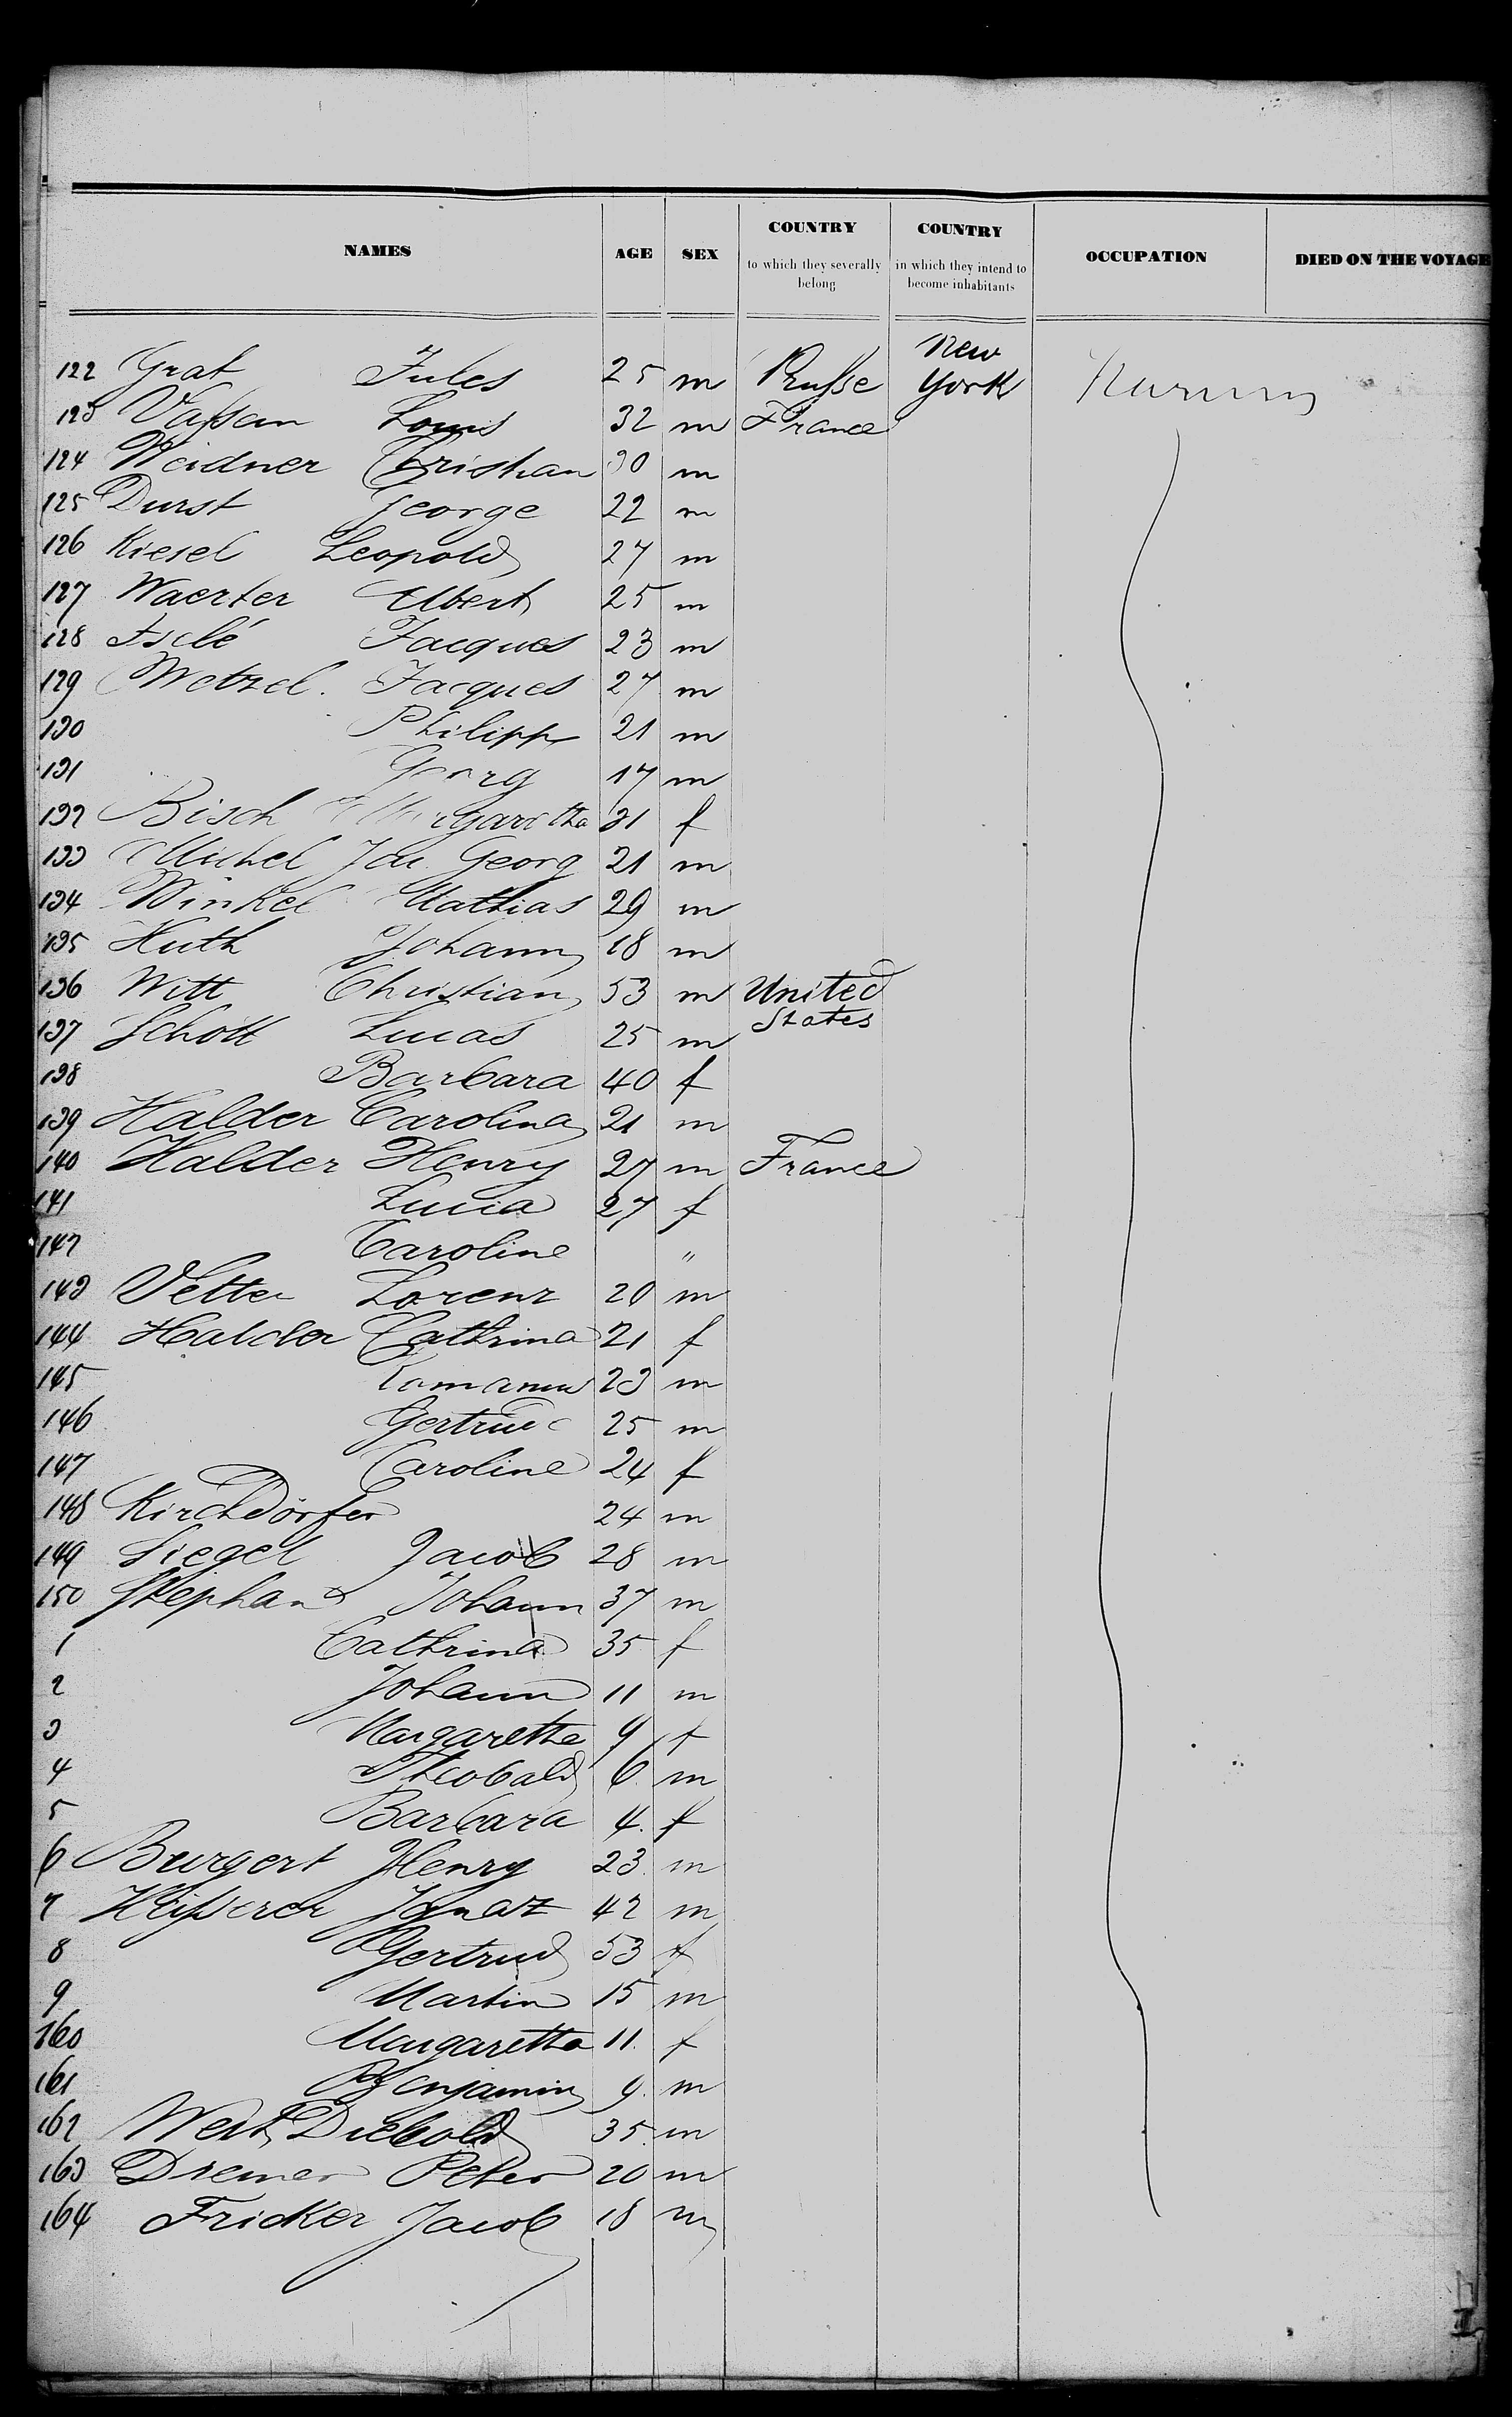 NAMES AGE SEX COUNTRY to which they severally belong COUNTRY in which they intend to become inhabitants OCCUPATION DIED ON THE VOYAGE
122 Graf Jules 25 m Prusse New York
123 Vassan Louis 32 m France
124 Weidner Christian 30 m
125 Durst George 22 m
126 Kiesel Leopold 27 m
127 Waerter Albert 25 m
128 Jacques 23 m
129 Wetzel Jacques 27 m
130 Philipp 21 m
131 Georg 17 m
132 Bisch Margaretha 31 f
133 Michel Georg 21 m
134 Winkel Mathias 29 m
135 Huth Johann 18 m
136 Witt Christian 53 m United States
137 Schott Lucas 25 m
138 Barbara 40 f
139 Halder Carolina 21 m
140 Halder Henry 27 m France
141 Lucia 27 f
142 Caroline "
143 Vetter Lorenz 20 m
144 Halder Cathrina 21 f
145 23 m
146 Gertrude 25 m
147 Caroline 24 f
148 Kirchdörfer 24 m
149 Siegel Jacob 28 m
150 Stephan Johann 37 m
1 Cathrina 35 f
2 Johann 11 m
3 Margaretha 9 f
4 Theobald 6 m
5 Barbara 4 f
6 Burgert Henry 23 m
7 Ignaz 42 m
8 Gertrud 53 f
9 Martin 15 m
160 Margaretha 11 f
161 Benjamin 9 m
162 Diebold 35 m
163 Dremer Peter 20 m
164 Fricker Jacob 18 m